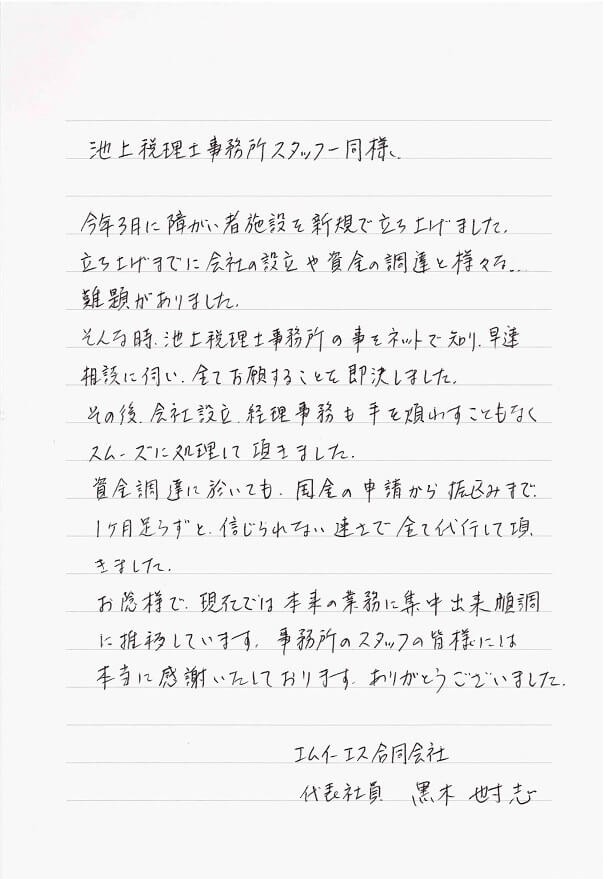 池上税理士事務所スタッフ一同様、
今年3月に障がい者施設を新規で立ち上げました。
立ち上げまでに会社の設立や資金の調達と様々な..
難題がありました。
そんな時、池上税理士事務所の事をネットで知り、早速
相談に伺い、全てお願することを即決しました。
その後、会社設立、経理事務も手を煩わすこともなく
スムーズに処理して頂きました。
資金調達に於いても、国金の申請から振込みまで、
1ヶ月足らずと、信じられない速さで全て代行して頂
きました。
お陰様で、現在では本来の業務に集中出来順調
に推移しています。事務所のスタッフの皆様には
本当に感謝いたしております。ありがとうございました。
エムイーエス合同会社
代表社員 黒木 志